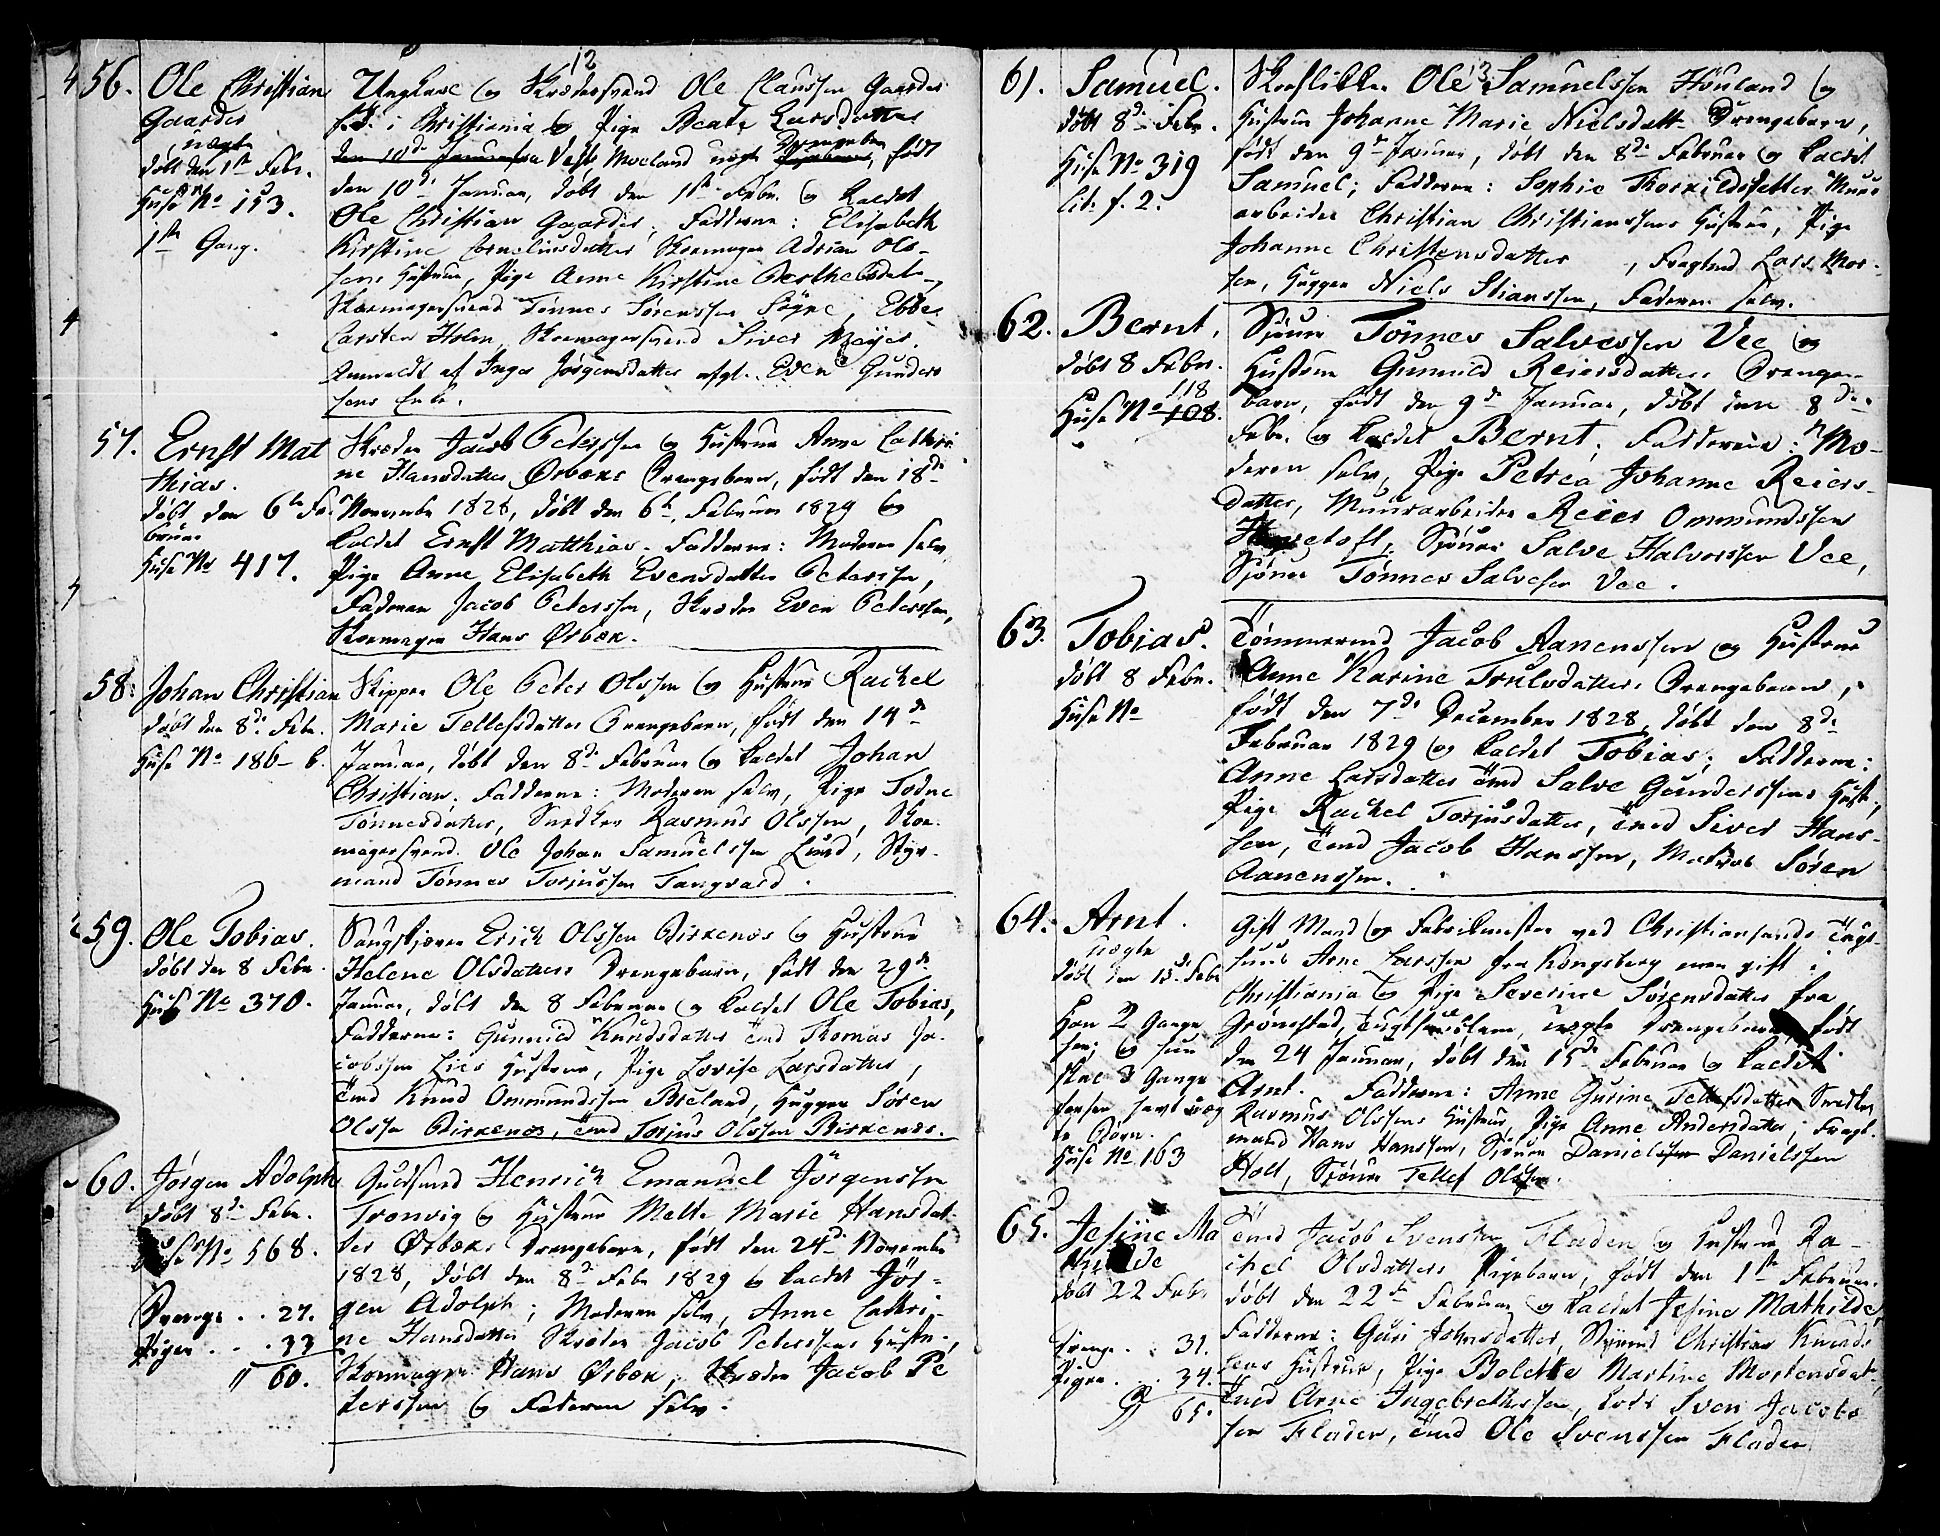 12
56. Ole Christian
Gaarder
uægte
døbt den 1ste Febr.
Huse No 113.
1ste Gang.
Ungkarl og Skrædersvend Ole Claussen Gaarder
fød i Christiania og Pige Beate Larsdatter
Moeland uægte Drengebarn, født
den 10de Januar, døbt den 1ste Febr. og kaldet
Ole Christian Gaarder, Fadderne: Elisabeth
Kirstine Corneliusdatter Skomager Adrian Ols-
sens Hustrue, Pige Anne Kirstine Berthelsdat-,
Skomagersvend Tønnes Sørenssen Søgne, Ebbe
Carsten Holm, Skomagersvend Siver Meyer.
Anmeldt af Inger Jørgensdatter afg. Even Gunders
sens Enke.
57. Ernst Mat
thias.
døbt den 6te Fe-
bruar
Huse No 417.
Skræder Jacob Peterssen og Hustrue Anne Cathri
ne Hansdatter Ørbeks Drengebarn, født den 18de
November 1828, døbt den 6te Februar 1829 og
kaldet Ernst Matthias. Fadderne: Moderen selv,
Pige Anne Elisabeth Evensdatter Peterssen,
Faderen Jacob Peterssen, Skræder Even Peterssen,
Skomager Hans Ørbek.
58. Johan Christian
døbt den 8de Febr.
Huse No 186- b.
Skipper Ole Peter Olssen og Hustrue Rachel
Marie Tellefsdatters Drengebarn, født den 14de
Januar, døbt den 8de Februar og kaldet Johan
Christian. Fadderne: Moderen selv, Pige Todne
Tønnesdatter, Snedker Rasmus Olssen, Skoe-
magersvend Ole Johan Samuelssen Lund, Styr-
mand Tønnes Torjussen Tangvald.
59. Ole Tobias.
døbt den 8 Febr.
Huse No 370.
Saugskjærer Erich Olssen Birkenes og Hustrue
Helene Olsdatters Drengebarn, født den 29de
Januar, døbt den 8 Februar og kaldet Ole Tobias,
Fadderne: Gunnild Knudsdatter Tmd Thomas Ja-
cobssen Lies Hustrue, Pige Lovise Larsdatter,
Tmd Knud Ommundssen Breland, Hugger Søren
Olssen Birkenes, Tmd Torjus Olssen Birkenes.
60. Jørgen Adolph
døbt 8de Febr.
Huse No 568.
Drenge . . 27.
Piger . . . 33
60.
Guldsmed Henrich Emanuel Jörgenssen
Tronvig og Hustrue Melte Marie Hansdat-
ter Ørbeks Drengebarn, født den 24de November
1828, døbt den 8de Febr 1829 og kaldet Jör-
gen Adolph; Moderen selv, Anne Cathri-
ne Hansdatter Skræder Jacob Peterssens Hustr.,
Skomager Hans Ørbek, Skræder Jacob Pe
terssen og Faderen selv.
13
61. Samuel.
døbt 8de Febr.
Huse No 319
lit. f. 2.
Skoflikker Ole Samuelssen Höuland og
Hustrue Johanne Marie Nielsdatt- Drengebarn,
født den 9de Januar, døbt den 8de Februar og kaldet
Samuel; Fadderne: Sophie Thorkildsdatter Muur
arbeider Christian Christianssens Hustrue, Pige
Johanne Christensdatter , Fragtmd Lars Mor-
sen, Hugger Niels Stianssen, Faderen selv.
62. Bernt,
døbt 8 Febr.
118
Huse No 108.
Sjöuer Tönnes Salvessen Vee og
Hustrue Gunnild Reiersdatters Drenge-
barn, født den 9de Januar, døbt den 8de
Febr. og kaldet Bernt; Fadderne: Mo-
deren selv, Pige Petrea Johanne Reiers-
datter, Muurarbeider Reier Ommundssen
Sjöuer Salve Halvorssen Vee,
Sjöuer Tönnes Salvesen Vee.
63. Tobias.
døbt 8 Febr.
Huse No
Tömmermd Jacob Aanenssen og Hustrue
Anne Karine Trulsdatters Drengebarn,
født den 7de December 1828, døbt den 8de
Februar 1829 og kaldet Tobias; Fadderne:
Anne Larsdatter Tmd Salve Gunderssens Hustr,
Pige Rachel Torjusdatter, Tmd Siver Hans-
sen, Tmd Jacob Hanssen, Matros Søren
Aanenssen.
64. Arnt.
uægte
døbt den 15de Febr
Han 2 Gange
og hun
3 Gange
uæg
te Børn.
Huse No 163
Gift Mand og Fabrikmester ved Christiansands Tugt-
huus Arne Larssen fra Kongsberg men gift i
Christiania og Pige Severine Sørensdatter fra
Grömstad, Tugthuuslem, uægte Drengebarn født
den 24 Januar, døbt den 15de Februar og kaldet
Arnt. Fadderne: Anne Gurine Tellefsdatter Snedker
Rasmus Olssens Hustrue, Pige Anne Andersdatter, Fragt-
mand Hans Hanssen, Sjöuer Daniel Danielssen
Holt, Sjöuer Tellef Olssen.
65. Jesine Ma
thilde
døbt 22 Febr
Drenge . . 31.
Piger . . 34.
65.
Tmd Jacob Svenssen Fladen og Hustrue Ra-
chel Olsdatters Pigebarn, født den 1ste Februar
døbt den 22de Februar og kaldet Jesine Mathilde,
Fadderne: Guri Johnsdatter, Styrmd Christian Knuds
sens Hustrue, Pige Bolette Martine Mortensdat-,
Tmd Arne Ingebrethssen, Lods Sven Jacobs
sen Fladen, Tmd Ole Svenssen Fladen